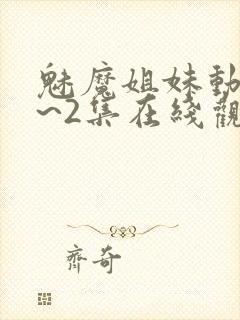 魅魔姐妹動
~2集在綫觀
齊奇